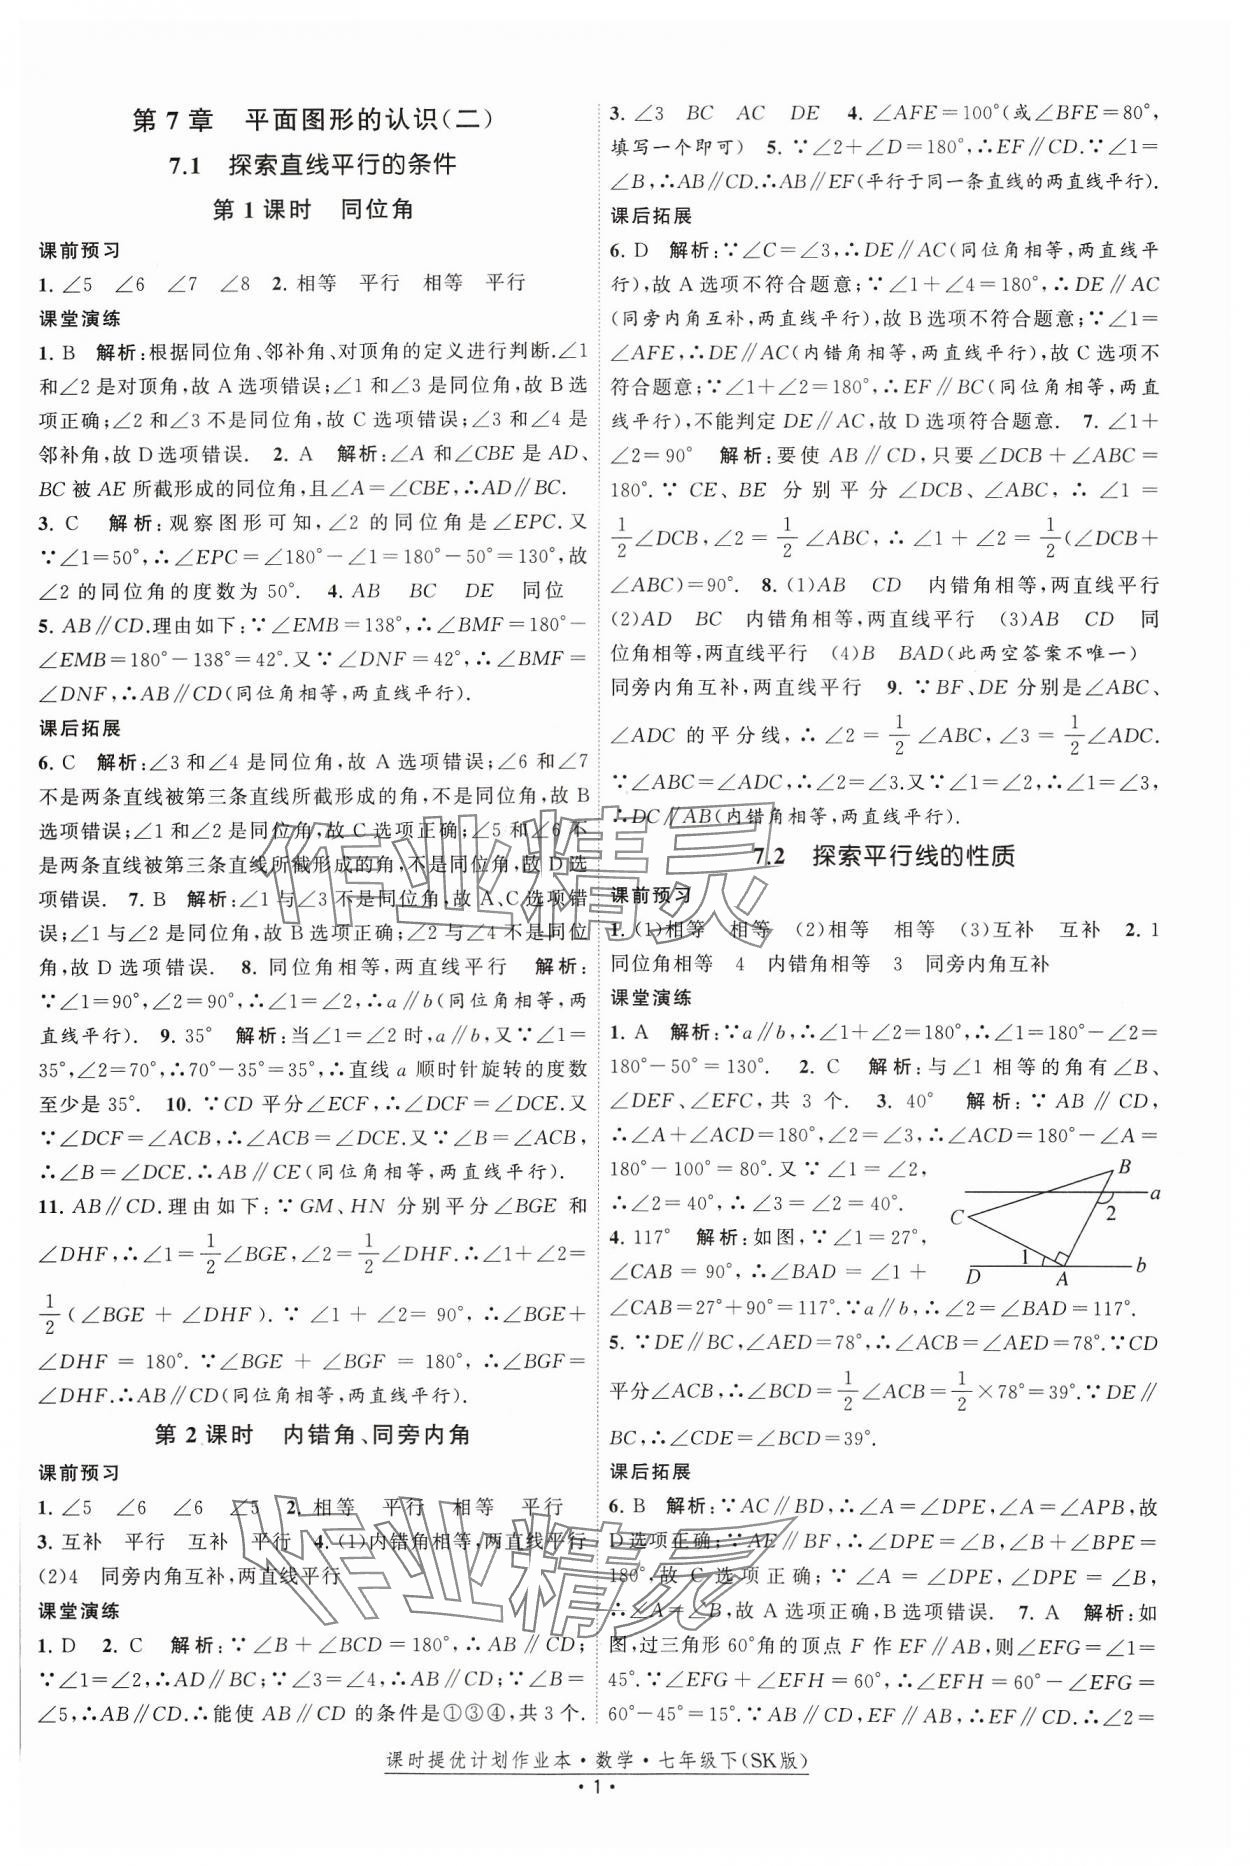 第 7 章　平面图形的认识(二)
7.1　探索直线平行的条件
第 1 课时　同位角
课前预习
1. ∠5　∠6　∠7　∠8　2. 相等　平行　相等　平行
课堂演练
1. B　解析:根据同位角、邻补角、对顶角的定义进行判断.∠1
和∠2 是对顶角,故 A 选项错误;∠1 和∠3 是同位角,故 B 选
项正确;∠2 和∠3 不是同位角,故 C 选项错误;∠3 和∠4 是
邻补角,故 D 选项错误.　2. A　解析:∠A 和∠CBE 是 AD、
BC 被 AE 所截形成的同位角,且∠A=∠CBE,∴AD∥BC.
3. C　解析:观察图形可知,∠2 的同位角是∠EPC.又
∵∠1=50°,∴∠EPC=∠180°-∠1=180°-50°=130°,故
∠2 的同位角的度数为 50°.　4. AB　BC　DE　同位
5. AB∥CD.理由如下:∵∠EMB=138°,∴∠BMF=180°-
∠EMB=180°-138°=42°.又∵∠DNF=42°,∴∠BMF=
∠DNF,∴AB∥CD(同位角相等,两直线平行).
课后拓展
6. C　解析:∠3 和∠4 是同位角,故 A 选项错误;∠6 和∠7
不是两条直线被第三条直线所截形成的角,不是同位角,故 B
选项错误;∠1 和∠2 是同位角,故 C 选项正确;∠5 和∠6 不
是两条直线被第三条直线所截形成的角,不是同位角,故 D 选
项错误.　7. B　解析:∠1 与∠3 不是同位角,故 A、C 选项错
误;∠1 与∠2 是同位角,故 B 选项正确;∠2 与∠4 不是同位
角,故 D 选项错误.　8. 同位角相等,两直线平行　解析:
∵∠1=90°,∠2=90°,∴∠1=∠2,∴a∥b(同位角相等,两
直线平行).　9. 35°　解析:当∠1=∠2 时,a∥b,又∵∠1=
35°,∠2=70°,∴70°-35°=35°,∴直线 a 顺时针旋转的度数
至少是 35°.　10. ∵CD 平分∠ECF,∴∠DCF=∠DCE.又
∵∠DCF=∠ACB,∴∠ACB=∠DCE.又∵∠B=∠ACB,
∴∠B=∠DCE.∴AB∥CE(同位角相等,两直线平行).
11. AB∥CD.理由如下:∵GM、HN 分别平分∠BGE 和
∠DHF,∴∠1=1/2∠BGE,∠2=1/2∠DHF.∴∠1+∠2=
1/2(∠BGE+∠DHF).∵∠1+∠2=90°,∴∠BGE+
∠DHF=180°.∵∠BGE+∠BGF=180°,∴∠BGF=
∠DHF.∴AB∥CD(同位角相等,两直线平行).
第 2 课时　内错角、同旁内角
课前预习
1. ∠5　∠6　∠6　∠5　2. 相等　平行　相等　平行
3. 互补　平行　互补　平行　4. (1)内错角相等,两直线平行
(2)4　同旁内角互补,两直线平行
课堂演练
1. D　2. C　解析:∵∠B+∠BCD=180°,∴AB∥CD;
∵∠1=∠2,∴AD∥BC;∵∠3=∠4,∴AB∥CD;∵∠B=
∠5,∴AB∥CD.∴能使 AB∥CD 的条件是①③④,共 3 个.
3. ∠3　BC　AC　DE　4. ∠AFE=100°(或∠BFE=80°,
填写一个即可)　5. ∵∠2+∠D=180°,∴EF∥CD.∵∠1=
∠B,∴AB∥CD.∴AB∥EF(平行于同一条直线的两直线平行).
课后拓展
6. D　解析:∵∠C=∠3,∴DE∥AC(同位角相等,两直线平
行),故 A 选项不符合题意;∵∠1+∠4=180°,∴DE∥AC
(同旁内角互补,两直线平行),故 B 选项不符合题意;∵∠1=
∠AFE,∴DE∥AC(内错角相等,两直线平行),故 C 选项不
符合题意;∵∠1+∠2=180°,∴EF∥BC(同位角相等,两直
线平行),不能判定 DE∥AC,故 D 选项符合题意.　7. ∠1+
∠2=90°　解析:要使 AB∥CD,只要∠DCB+∠ABC=
180°.∵CE、BE 分别平分∠DCB、∠ABC,∴∠1=
1/2∠DCB,∠2=1/2∠ABC,∴∠1+∠2=1/2(∠DCB+
∠ABC)=90°.　8. (1)AB　CD　内错角相等,两直线平行
(2)AD　BC　内错角相等,两直线平行　(3)AB　CD　同
位角相等,两直线平行　(4)B　BAD(此两空答案不唯一)
同旁内角互补,两直线平行　9. ∵BF、DE 分别是∠ABC、
∠ADC 的平分线,∴∠2=1/2∠ABC,∠3=1/2∠ADC.
∵∠ABC=∠ADC,∴∠2=∠3.又∵∠1=∠2,∴∠1=∠3,
∴DC∥AB(内错角相等,两直线平行).
7.2　探索平行线的性质
课前预习
1. (1)相等　相等　(2)相等　相等　(3)互补　互补　2. 1
同位角相等　4　内错角相等　3　同旁内角互补
课堂演练
1. A　解析:∵a∥b,∴∠1+∠2=180°,∴∠1=180°-∠2=
180°-50°=130°.　2. C　解析:与∠1 相等的角有∠B、
∠DEF、∠EFC,共 3 个.　3. 40°　解析:∵AB∥CD,
∴∠A+∠ACD=180°,∠2=∠3,∴∠ACD=180°-∠A=
180°-100°=80°.又∵∠1=∠2,
∴∠2=40°,∴∠3=∠2=40°.
4. 117°　解析:如图,∵∠1=27°,
∠CAB=90°,∴∠BAD=∠1+
∠CAB=27°+90°=117°.∵a∥b,∴∠2=∠BAD=117°.
B
a
C
2
1
D
A
b
5. ∵DE∥BC,∠AED=78°,∴∠ACB=∠AED=78°.∵CD
平分∠ACB,∴∠BCD=1/2∠ACB=1/2×78°=39°.∵DE∥
BC,∴∠CDE=∠BCD=39°.
课后拓展
6. B　解析:∵AC∥BD,∴∠A=∠DPE,∠A=∠APB,故
D 选项正确;∵AE∥BF,∴∠DPE=∠B,∠B+∠BPE=
180°,故 C 选项正确;∵∠A=∠DPE,∠DPE=∠B,
∴∠A=∠B,故 A 选项正确,B 选项错误.　7. A　解析:如
图,过三角形 60°角的顶点 F 作 EF∥AB,则∠EFG=∠1=
45°.∵∠EFG+∠EFH=60°,∴∠EFH=60°-∠EFG=
60°-45°=15°.∵AB∥CD,EF∥AB,∴EF∥CD,∴∠2=
课时提优计划作业本·数学·七年级下(SK版)
·1·
作业精灵
作业精灵